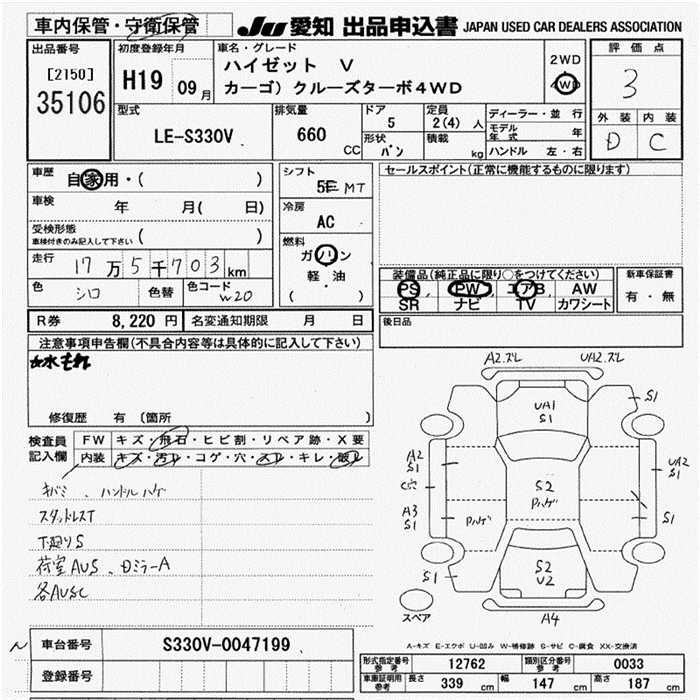 車内保管・守衛保管
JU 愛知 出品申込書 JAPAN USED CAR DEALERS ASSOCIATION
出品番号
[2150]
35106
初度登録年月
H19 09月
車名・グレード
ハイゼット V
カーゴ) クルーズターボ4WD
2WD
4WD
評価点
3
外装 内装
D C
型式
LE-S330V
排気量
660
CC
ドア
5
定員
2(4) 人
形状
バン
積載
kg
ディーラー・並行
モデル年式 年
ハンドル 左・右
車歴
自家用・( )
車検 年 月( 日)
受検形態
車検付きのみ記入して下さい ( )
走行 17万5千703km
色 シロ 色替 色コード W20
シフト
5E MT
冷房
AC
燃料
ガソリン
軽・油
( )
セールスポイント(正常に機能するものに限ります)
装備品(純正品に限り○をつけてください)
PS, PW, エアB, AW
SR ナビ TV カワシート
新車保証書
有・無
後日品
R券 8,220 円 名変通知期限 月 日
注意事項申告欄(不具合内容等は具体的に記入して下さい)
水もれ
修復歴 有 (箇所 )
検査員
記入欄
FW キズ・飛石・ヒビ割・リペア跡・X要
内装 キズ・汚レ・コゲ・穴・スレ・キレ・破レ
キバミ、ハンドルハゲ
スタッドレスT
下廻りS
荷室AUS、
各AUSC
A2.ズレ UA2.ズレ
S1
UA1
S1
A2
S1
UA2
S1
C穴
S2
Pハゲ
A3
S1
Pハゲ
S1
S1
S2
U2
A4
スペア
A-キズ E-エクボ U-凹み W-補修跡 S-サビ C-腐食 XX-交換済
車台番号 S330V-0047199
登録番号
形式指定番号 参考 12762 類別区分番号 参考 0033
車庫証明用 参考 長さ 339 cm 幅 147 cm 高さ 187 cm